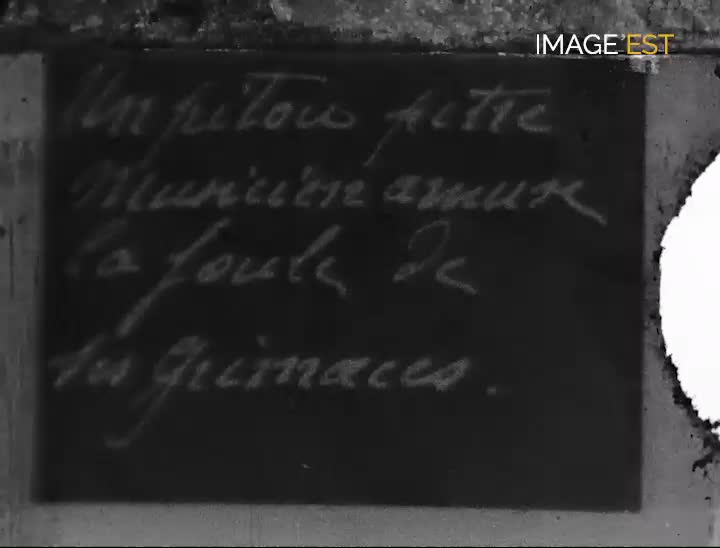 IMAGE'EST
Un pitou pitre
Musicien amuse
la foule de
ses Grimaces.